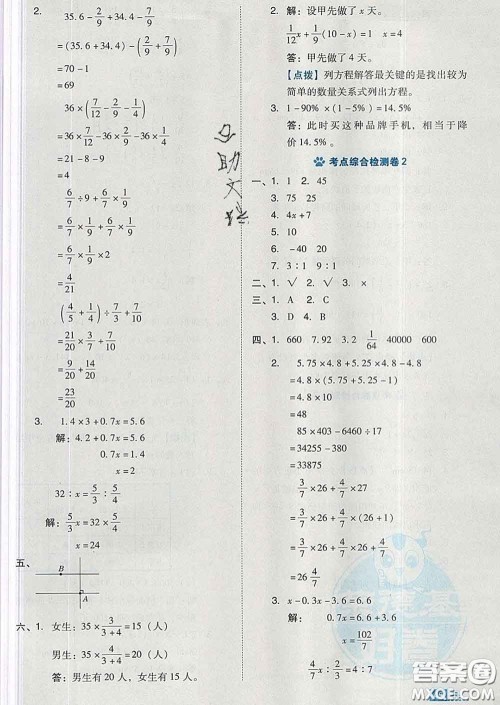 2. 35.6−2/9+34.4−7/9
=(35.6+34.4)−(2/9+7/9)
=70−1
=69
36×(7/12−2/9−1/4)
=36×7/12−36×2/9−36×1/4
=21−8−9
=4
6/7÷9+6/7×1/9
=6/7×1/9+6/7×1/9
=6/7×1/9×2
=4/21
(4/5+1/4)÷7/3+7/10
=21/20×3/7+7/10
=9/20+14/20
=23/20
3. 1.4×3+0.7x=5.6
解:4.2+0.7x=5.6
0.7x=1.4
x=2
32∶x=5/3∶5/4
解:5/3x=32×5/4
x=24
五、
B
A
六、1. 女生:35×3/(3+4)=15(人)
男生:35×4/(3+4)=20(人)
答:男生有20人,女生有15人。
2. 解:设甲先做了x天。
1/12x+1/6(10−x)=1 x=4
答:甲先做了4天。
【点拨】列方程解答最关键的是找出较为
简单的数量关系式列出方程。
3. 1−90%×(1−5%)=14.5%
答:此时买这种品牌手机,相当于降
价14.5%。
考点综合检测卷2
一、1. 1 2. 45
3. 75 25
4. 4x+7
5. 10
6. −40 20
7. 3∶1 9∶1
二、1. √ 2. √ 3. ×
三、1. A 2. C
3. D 4. B
四、1. 660 7.92 3.2 1/64 40000 600
2. 5.75×4.8+5.25×4.8−4.8
=4.8×(5.75+5.25−1)
=4.8×10
=48
85×403−6460÷17
=34255−380
=33875
3/7×26+4/7×26
=26×(3/7+4/7)
3. x−0.3x−3.6=6.6
解: 0.7x=10.2
x=102/7
答案圈
MXQE.COM